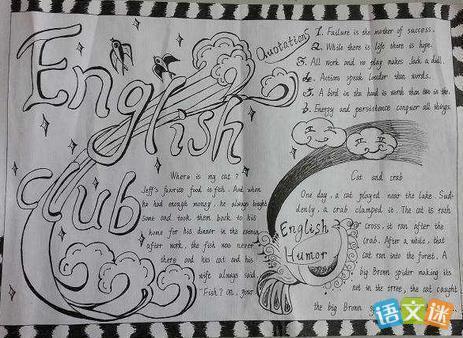 English
Club
Quotations
1. Failure is the mother of success.
2. While there is life there is hope.
3. All work and no play makes Jack a dull.
4. Actions speak louder than words.
5. A bird in the hand is worth than two in the
6. Energy and persistence conquer all things.
Where is my cat?
Jeff's favorite food is fish. And when
he had enough money, he always bought
some and took them back to his
home for his dinner in the evening
after work, the fish was never
there and his cat and his
wife always said,
"Fish? Oh, your
English
Humor
Cat and crab
One day, a cat played near the lake. Sud-
denly, a crab clamped it. The cat is
cross, it ran after the
crab. After a while, that
cat ran into the forest. A
big Brown spider making its
net in the tree, the cat caught
the big Brown
语文迷